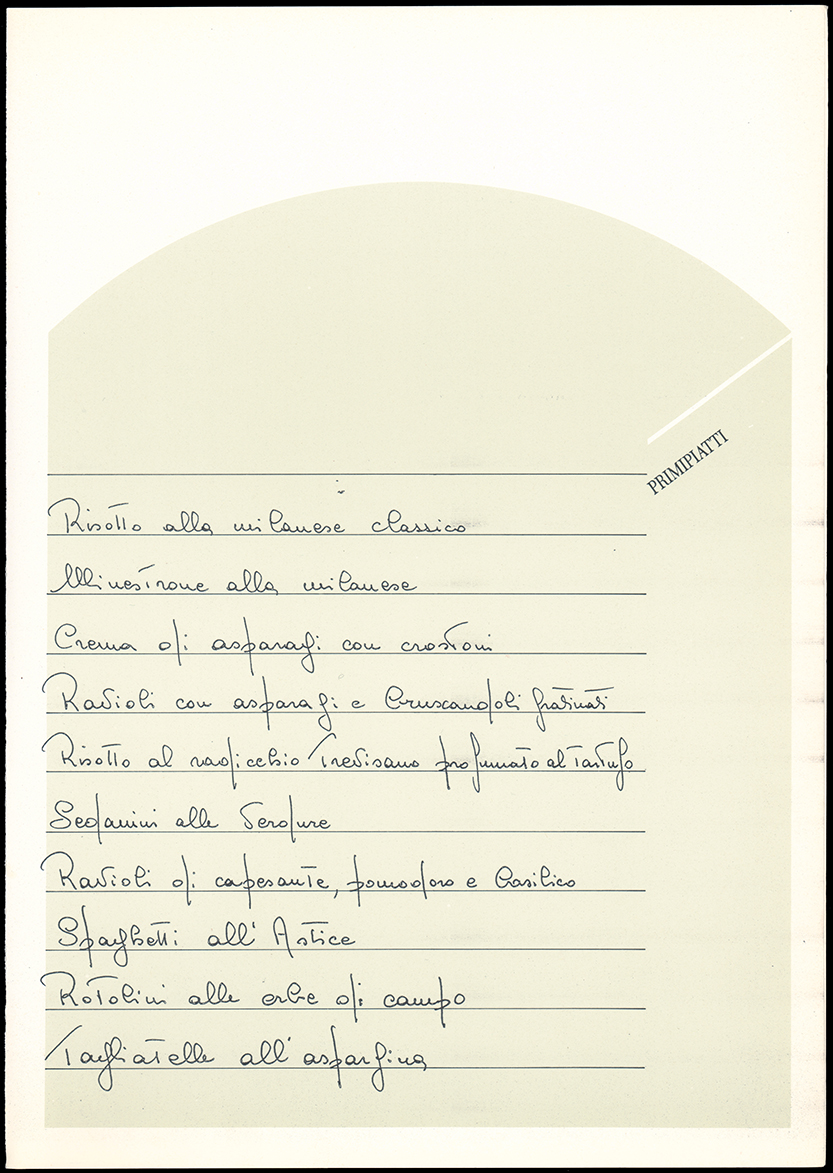 PRIMIPIATTI
Risotto alla milanese classico
Minestrone alla milanese
Crema di asparagi con crostoni
Ravioli con asparagi e bruscandoli gratinati
Risotto al radicchio Trevisano profumato al tartufo
Sedanini alle verdure
Ravioli di capesante, pomodoro e basilico
Spaghetti all' Astice
Rotolini alle erbe di campo
Tagliatelle all' aspargina